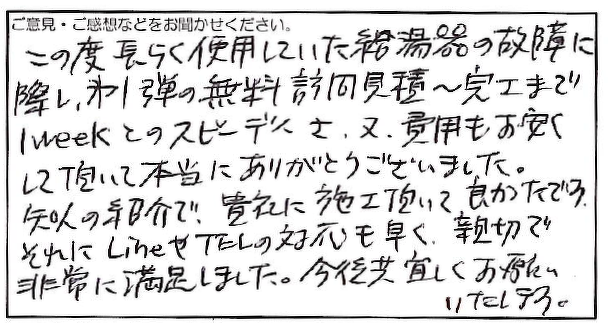 ご意見・ご感想などをお聞かせください。
この度長らく使用していた給湯器の故障に
際し、才1弾の無料訪問見積～完工まで
1weekとのスピーディさ、又、費用もお安く
して頂いて本当にありがとうございました。
知人の紹介で、貴社に施工頂いて良かったです。
それにLineやTELの対応も早く、親切で
非常に満足しました。今後共宜しくお願い
いたします。